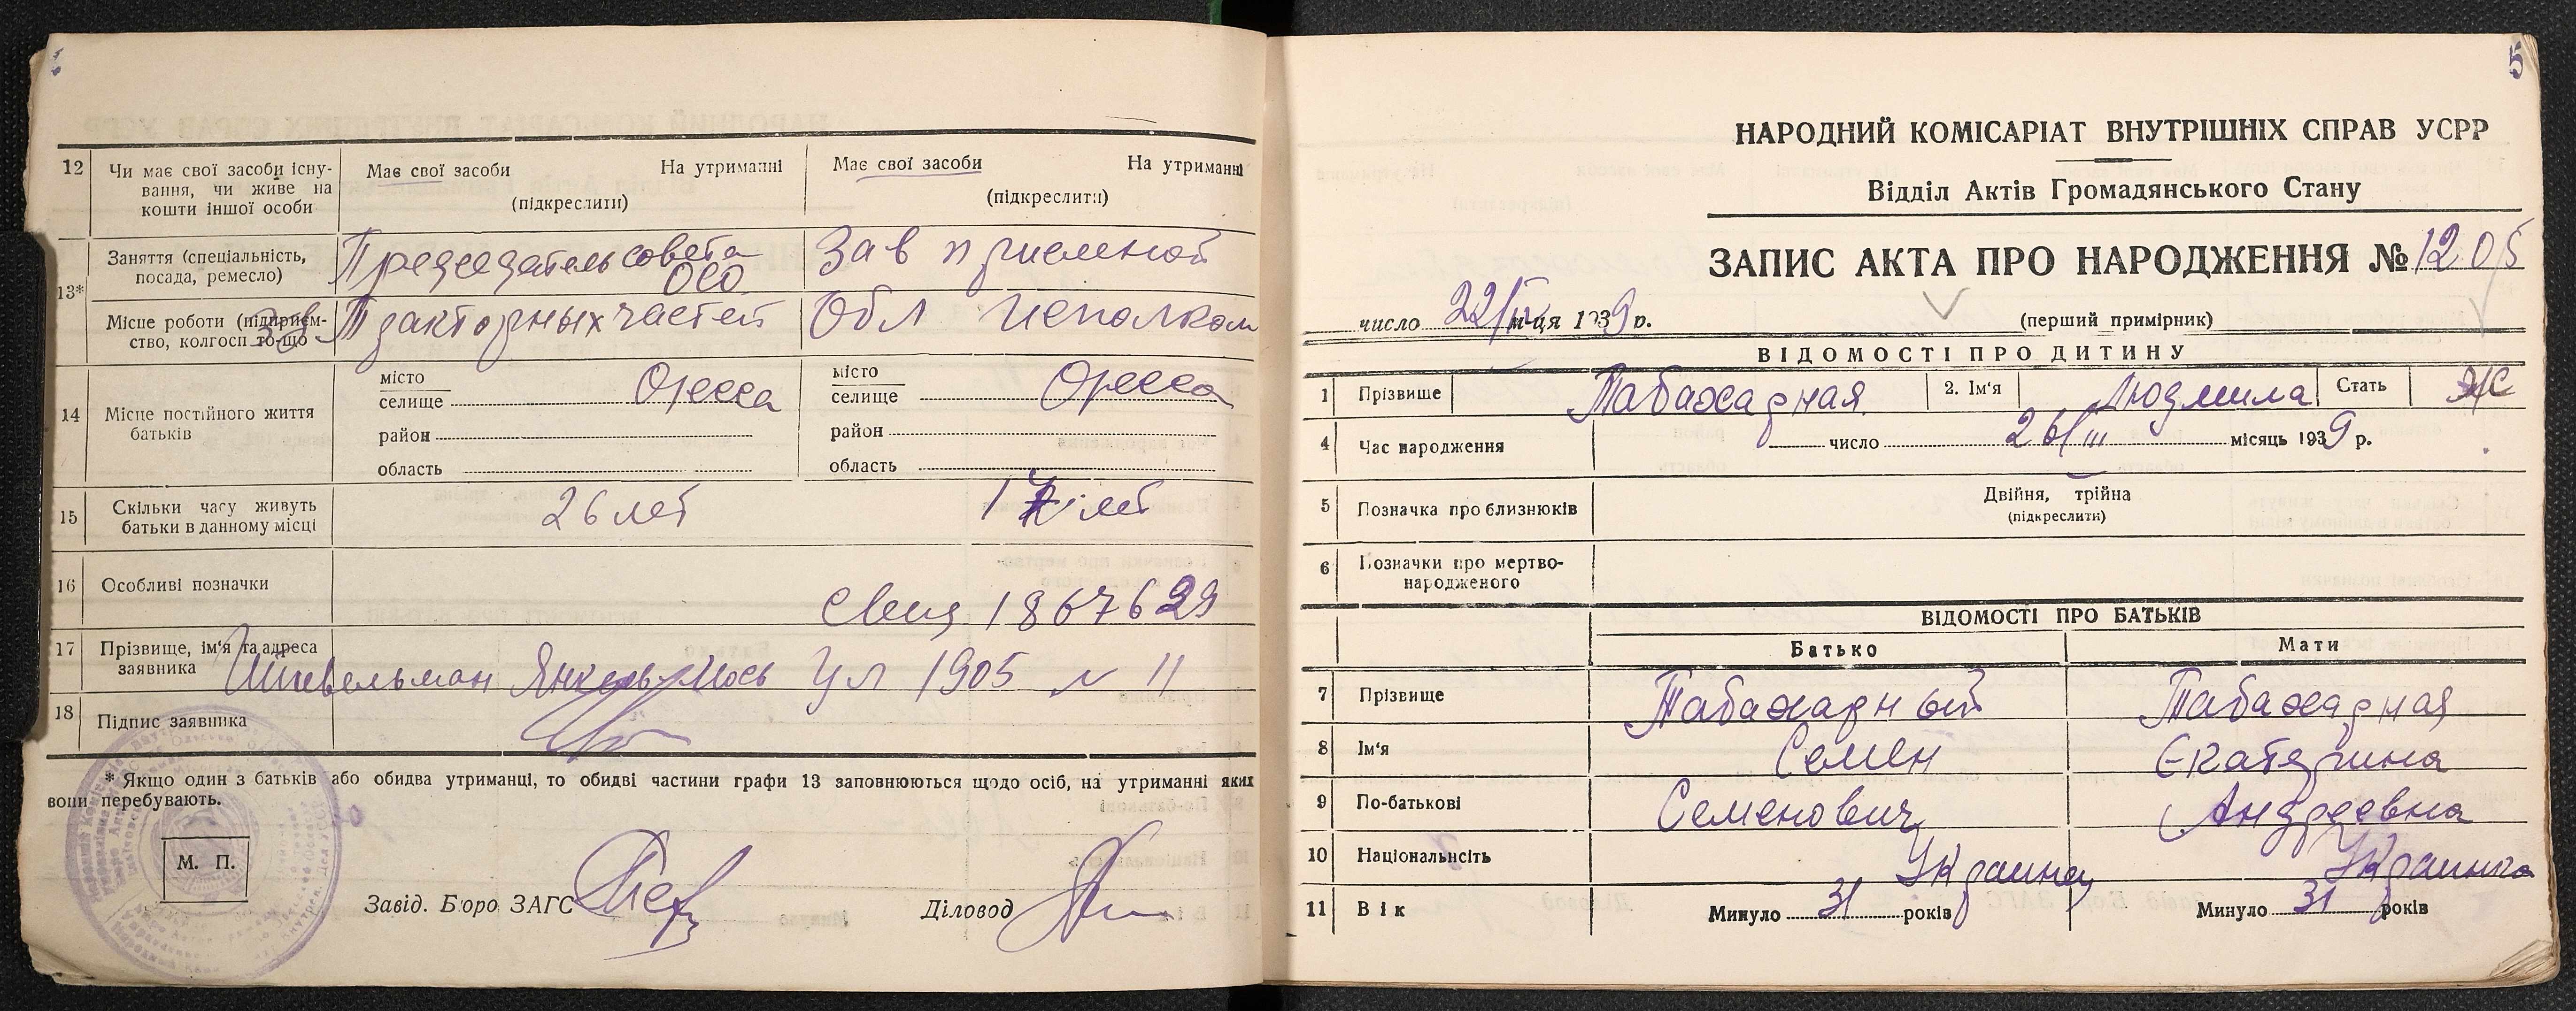 12 Чи має свої засоби існу-
вання, чи живе на
кошти іншої особи
Має свої засоби На утриманні
(підкреслити)
Має свої засоби На утриманні
(підкреслити)
13* Заняття (спеціальність,
посада, ремесло)
Председатель совета
ОСО
Зав приемной
Місце роботи (підприєм-
ство, колгосп то-що
З-д Тракторных частей
Обл Исполком
14 Місце постійного життя
батьків
місто
селище Одесса
район
область
місто
селище Одесса
район
область
15 Скільки часу живуть
батьки в данному місці
26 лет
лет
16 Особливі позначки
1867629
17 Прізвище, ім'я та адреса
заявника
Янкель Ул 1905 № 11
18 Підпис заявника
* Якщо один з батьків або обидва утриманці, то обидві частини графи 13 заповнюються щодо осіб, на утриманні яких
вони перебувають.
М. П.
Завід. Бюро ЗАГС
Діловод
5
НАРОДНИЙ КОМІСАРІАТ ВНУТРІШНІХ СПРАВ УСРР
Відділ Актів Громадянського Стану
ЗАПИС АКТА ПРО НАРОДЖЕННЯ № 1205
число 22/IV м-ця 1939 р.
(перший примірник)
ВІДОМОСТІ ПРО ДИТИНУ
1 Прізвище Табахарная 2. Ім'я Людмила Стать Ж
4 Час народження число 26/III місяць 1939 р.
5 Позначка про близнюків Двійня, трійна
(підкреслити)
6 Позначки про мертво-
народженого
ВІДОМОСТІ ПРО БАТЬКІВ
Батько Мати
7 Прізвище Табахарный Табахарная
8 Ім'я Семен Екатерина
9 По-батькові Семенович Андреевна
10 Національність Украинец Украинка
11 Вік Минуло 31 років Минуло 31 років